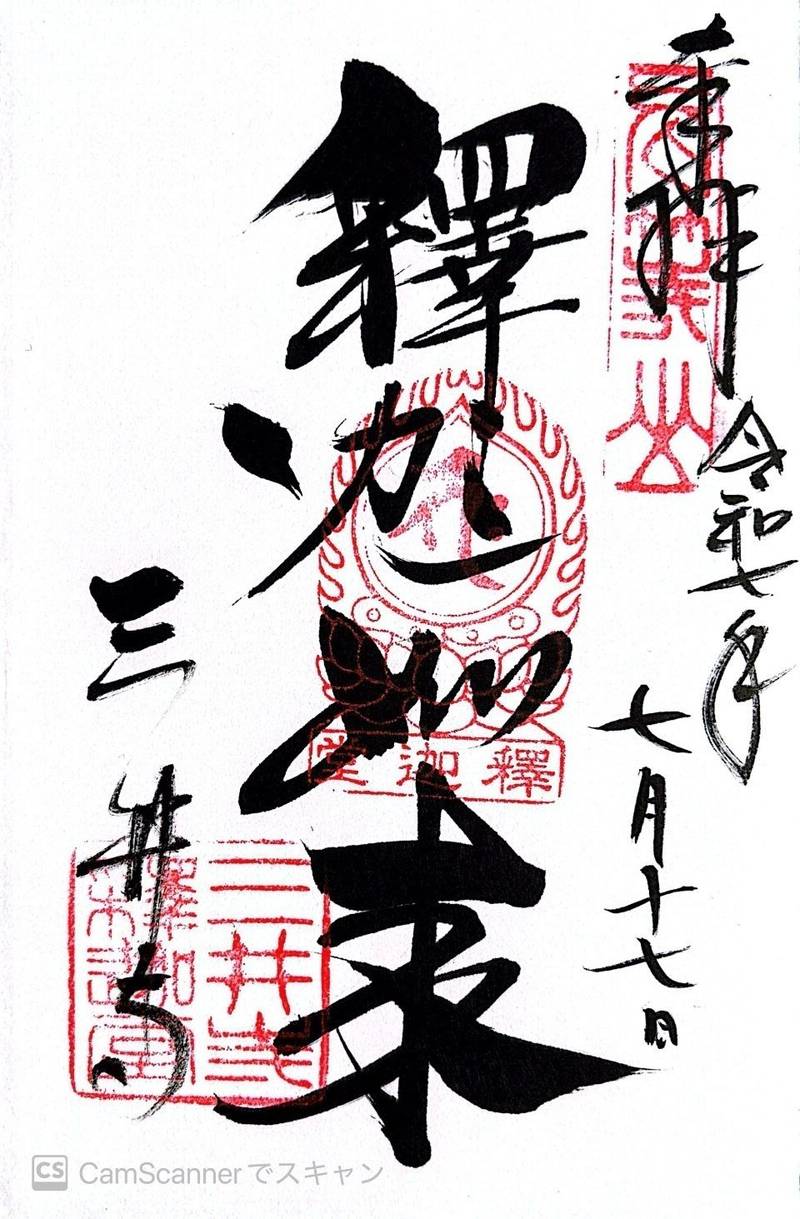 奉拝
令和七年
七月十七日
釋迦如来
釋迦堂
三井寺
三井寺
釋迦堂
CS CamScannerでスキャン